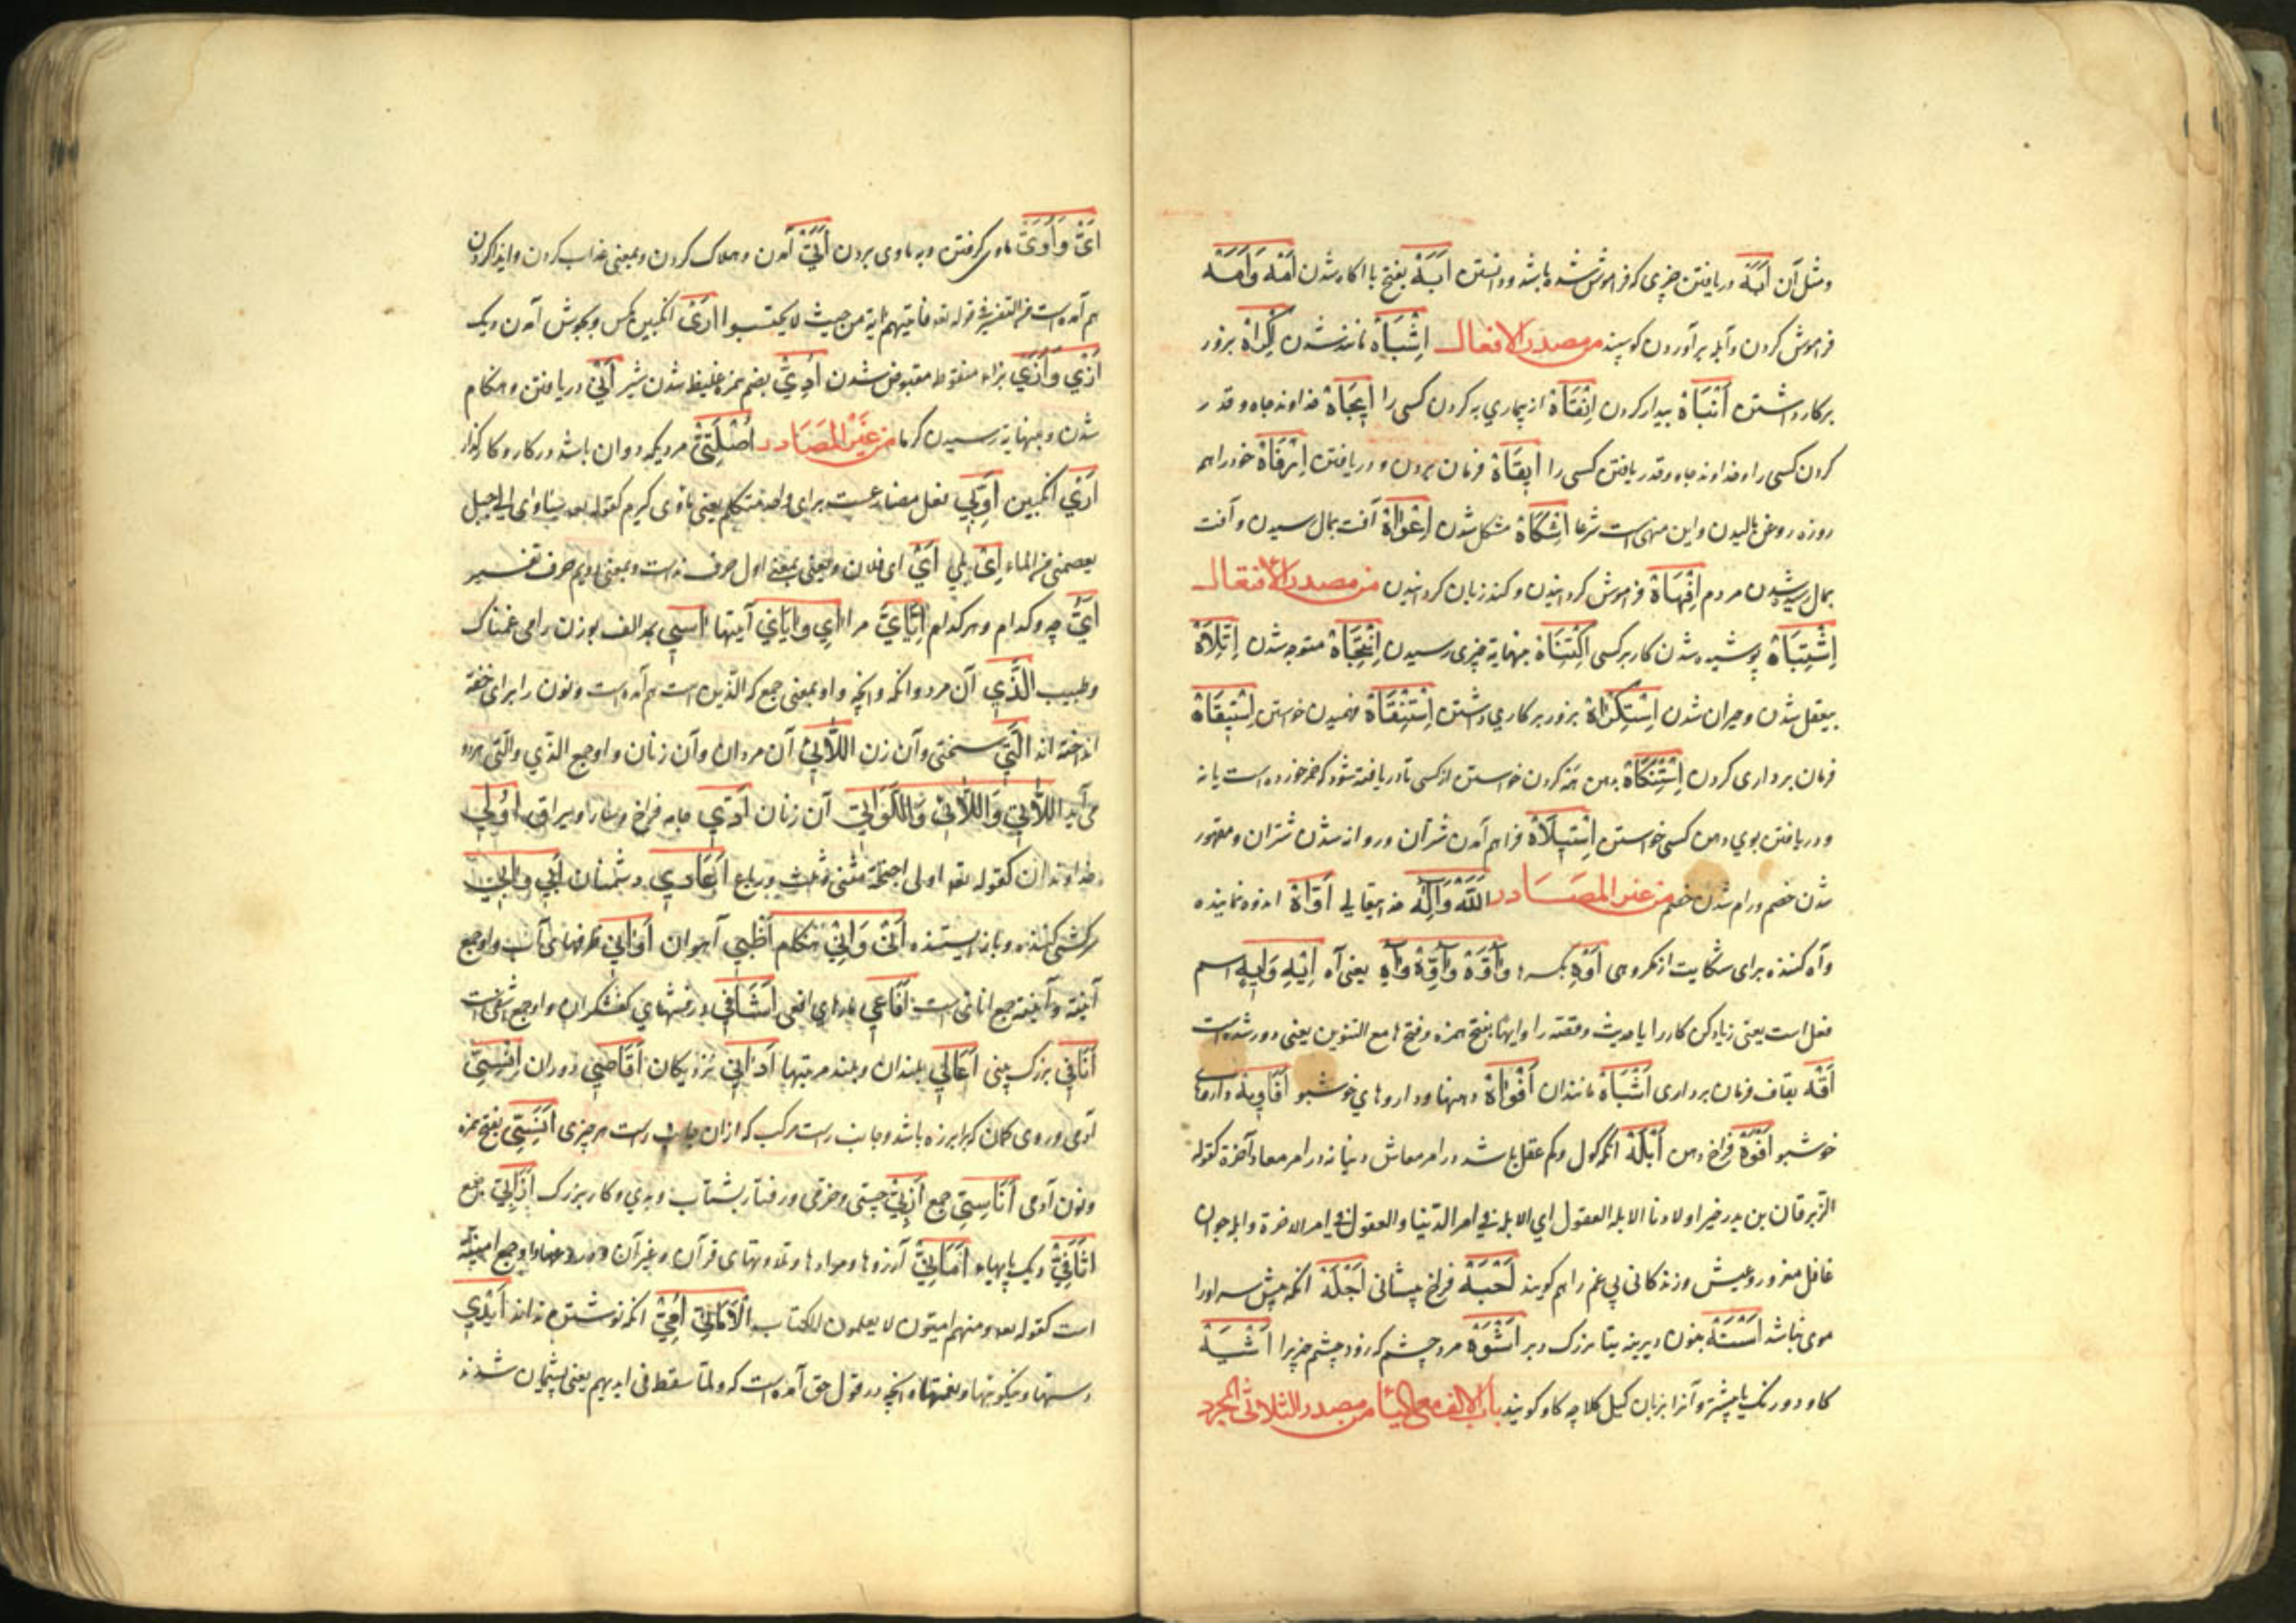 ومثل آن اَبَهٌ دریافتن چیزی که فراموش شده باشد ودانستن اَبَهٌ بفتح با اکاه شدن اَمْهٌ وَاَمَهٌ
فراموش کردن وآبله برآوردن کوسپند من مصدر الافعال اِشْبَاهٌ مانند شدن اِکْرَاهٌ بزور
برکار داشتن اِنْبَاهٌ بیدار کردن اِنْقَاهٌ از بیماری به کردن کسی را اِیجَاهٌ خداوند جاه وقدر
کردن کسی را وخداوند جاه وقدر یافتن کسی را اِیقَاهٌ فرمان بردن ودریافتن اِرْفَاهٌ خود را هم
روزه روغن مالیدن واین منهی است شرعا اِشْکَاهٌ مشکل شدن اِعْوَاهٌ آفت بمال رسیدن وآفت
بمال رسیده شدن مردم اِفْهَاهٌ فراموش کردانیدن وکند زبان کردانیدن من مصدر الافتعال
اِشْتِبَاهٌ پوشیده شدن کار بر کسی اِکْتِنَاهٌ بنهایة چیزی رسیدن اِتِّجَاهٌ متوجه شدن اِتِّلَاهٌ
بیعقل شدن وحیران شدن اِسْتِکْرَاهٌ بزور بر کاری داشتن اِسْتِنْقَاهٌ فهمیدن خواستن اِسْتِیقَاهٌ
فرمان برداری کردن اِسْتِنْکَاهٌ دهن کردن خواستن از کسی تا دریافته شود که خمر خورده است یا نه
ودریافتن بوی دهن کسی خواستن اِسْتِیلَاهٌ فراهم آمدن شتران وروانه شدن شتران ومقهور
شدن خصم ورام شدن خصم من غیر المصادر اَللّٰهُ وَاِلٰهٌ خدایتعالی اَوَّاهٌ اندوه نماینده
وآه کننده برای شکایت از مکروهی اَوْهِ بکسر ها وَاَوَّهْ وَاَوِّهْ وَآهِ یعنی آه اِیْهِ وَاِیهٍ اسم
فعل است یعنی زیاد کن کار را یا حدیث وقصه را وایها بفتح همزه وفتح ها مع التنوین یعنی دور شده است
اَقْهٌ بقاف فرمان برداری اَشْبَاهٌ مانندان اَفْوَاهٌ دهنها وداروهای خوشبو اَفَاوِیهُ داروهای
خوشبو اَفْوَهُ فراخ دهن اَبْلَهُ انکه کول وکم عقل باشد در امر معاش دنیا نه در امر معاد آخرة کقوله
الزبرقان بن بدر خیر اولادنا الابله العقول ای الابله فی امر الدنیا والعقول فی امر الاخرة وابله جوان
غافل مغرور وعیش وزندکانی بی غم را هم کویند اَجْبَهُ فراخ پیشانی اَجْلَهُ انکه پیش سر اورا
موی نباشد اَسْتَهُ بنون دیرینه یتا بزرک دبر اَشْوَهُ مرد چشم که زود چشم چیز را اَشْیَهُ
کاو دو رنک یا بیشتر وآنرا بزبان کیل کلاچه کاو کویند باب الالف مع الیاء من مصدر الثلاثی المجرد
اَیٌّ وَاُوِیٌّ ماوی کرفتن وبه ماوی بردن اَتْیٌ آمدن وهلاک کردن وبمعنی عذاب کردن وایذا کردن
هم آمده است فی التفسیر فی قوله تع فاتیهم الله من حیث لا یحتسبوا اَرْیٌ انکبین مکس وبجوش آمدن دیک
اَزْیٌ وَاُزِیٌّ بزاء منقوط مقبوض شدن اُدِیٌّ بضم همزه غلیظ شدن شیر اَنْیٌ دریافتن وهنکام
شدن وبنهایة رسیدن کرما من غیر المصادر اُصْلَتِیٌّ مردیکه دوان باشد در کار وکارکذار
اَرْیٌ انکبین اٰوِی فعل مضارعست برای واحد متکلم یعنی ماوی کیرم کقوله تع ساوی الی جبل
یعصمنی من الماء اِیْ بلی اَیْ ای فلان ویعنی بمعنی اول حرف نداست وبمعنی دویم حرف تفسیر
اَیٌّ چه وکدام وهر کدام اِیَّایَ مرا آیٌ وَآیَاتِی آیتها اٰسِی بمد الف بوزن رامی غمناک
وطبیب اَلَّذِی آن مرد وانکه وانچه واو بمعنی جمع که الذین است هم آمده است ونون را برای خفة
انداخته اند اَلَّتِی سختی وآن زن اَللَّائِی آن مردان وآن زنان واو جمع الذی والتی هردو
می آید اَللَّاتِی وَاللَّائِی وَاللَّوَاتِی آن زنان اَدِی جامه فراخ اُولِی
خداوندان کقوله تعه اولی اجنحة مثنی وثلث ورباع اَعَادِی دشمنان اَبِی وَاٰبِی
سرکشی کننده وباز ایستنده اَنٰی وَاِنٰی هنکام اَظْبِی آهوان اَوَانِی ظرفهای آب واو جمع
آنیه وآنیه جمع اناءست اَفَاعِی مارهای افعی اَشَافِی درفشهای کفشکران واو جمع اشفی است
اُنَافِی بزرک بینی اَعَالِی بلندان وبلند مرتبها اَدَانِی نزدیکان اَقَاصِی دوران اِنْسِیٌّ
آدمی وروی کمان که برابر زه باشد وجانب راست مرکب که ازان جانب راست هر چیزی اَنَسِیٌّ بفتح همزه
ونون آدمی اَنَاسِیُّ جمع اَزْبِیٌّ چستی وخرقی ورفتار بشتاب وبدی وکار بزرک اَزَابِیُّ جمع
اَثَافِیُّ دیک پایهها اَمَانِیُّ آرزوها ومرادها وتلاوتهای قرآن وغیر آن ودروغها واو جمع امنیّة
است کقوله تعه ومنهم امیّون لا یعلمون الکتاب الا اَمَانِیَّ اُمِّیٌّ انکه نوشتن نداند اَیْدِی
دستها ونیکوییها ونعمتها وانچه در قول حق آمده است که ولما سقط فی ایدیهم یعنی پشیمان شدند